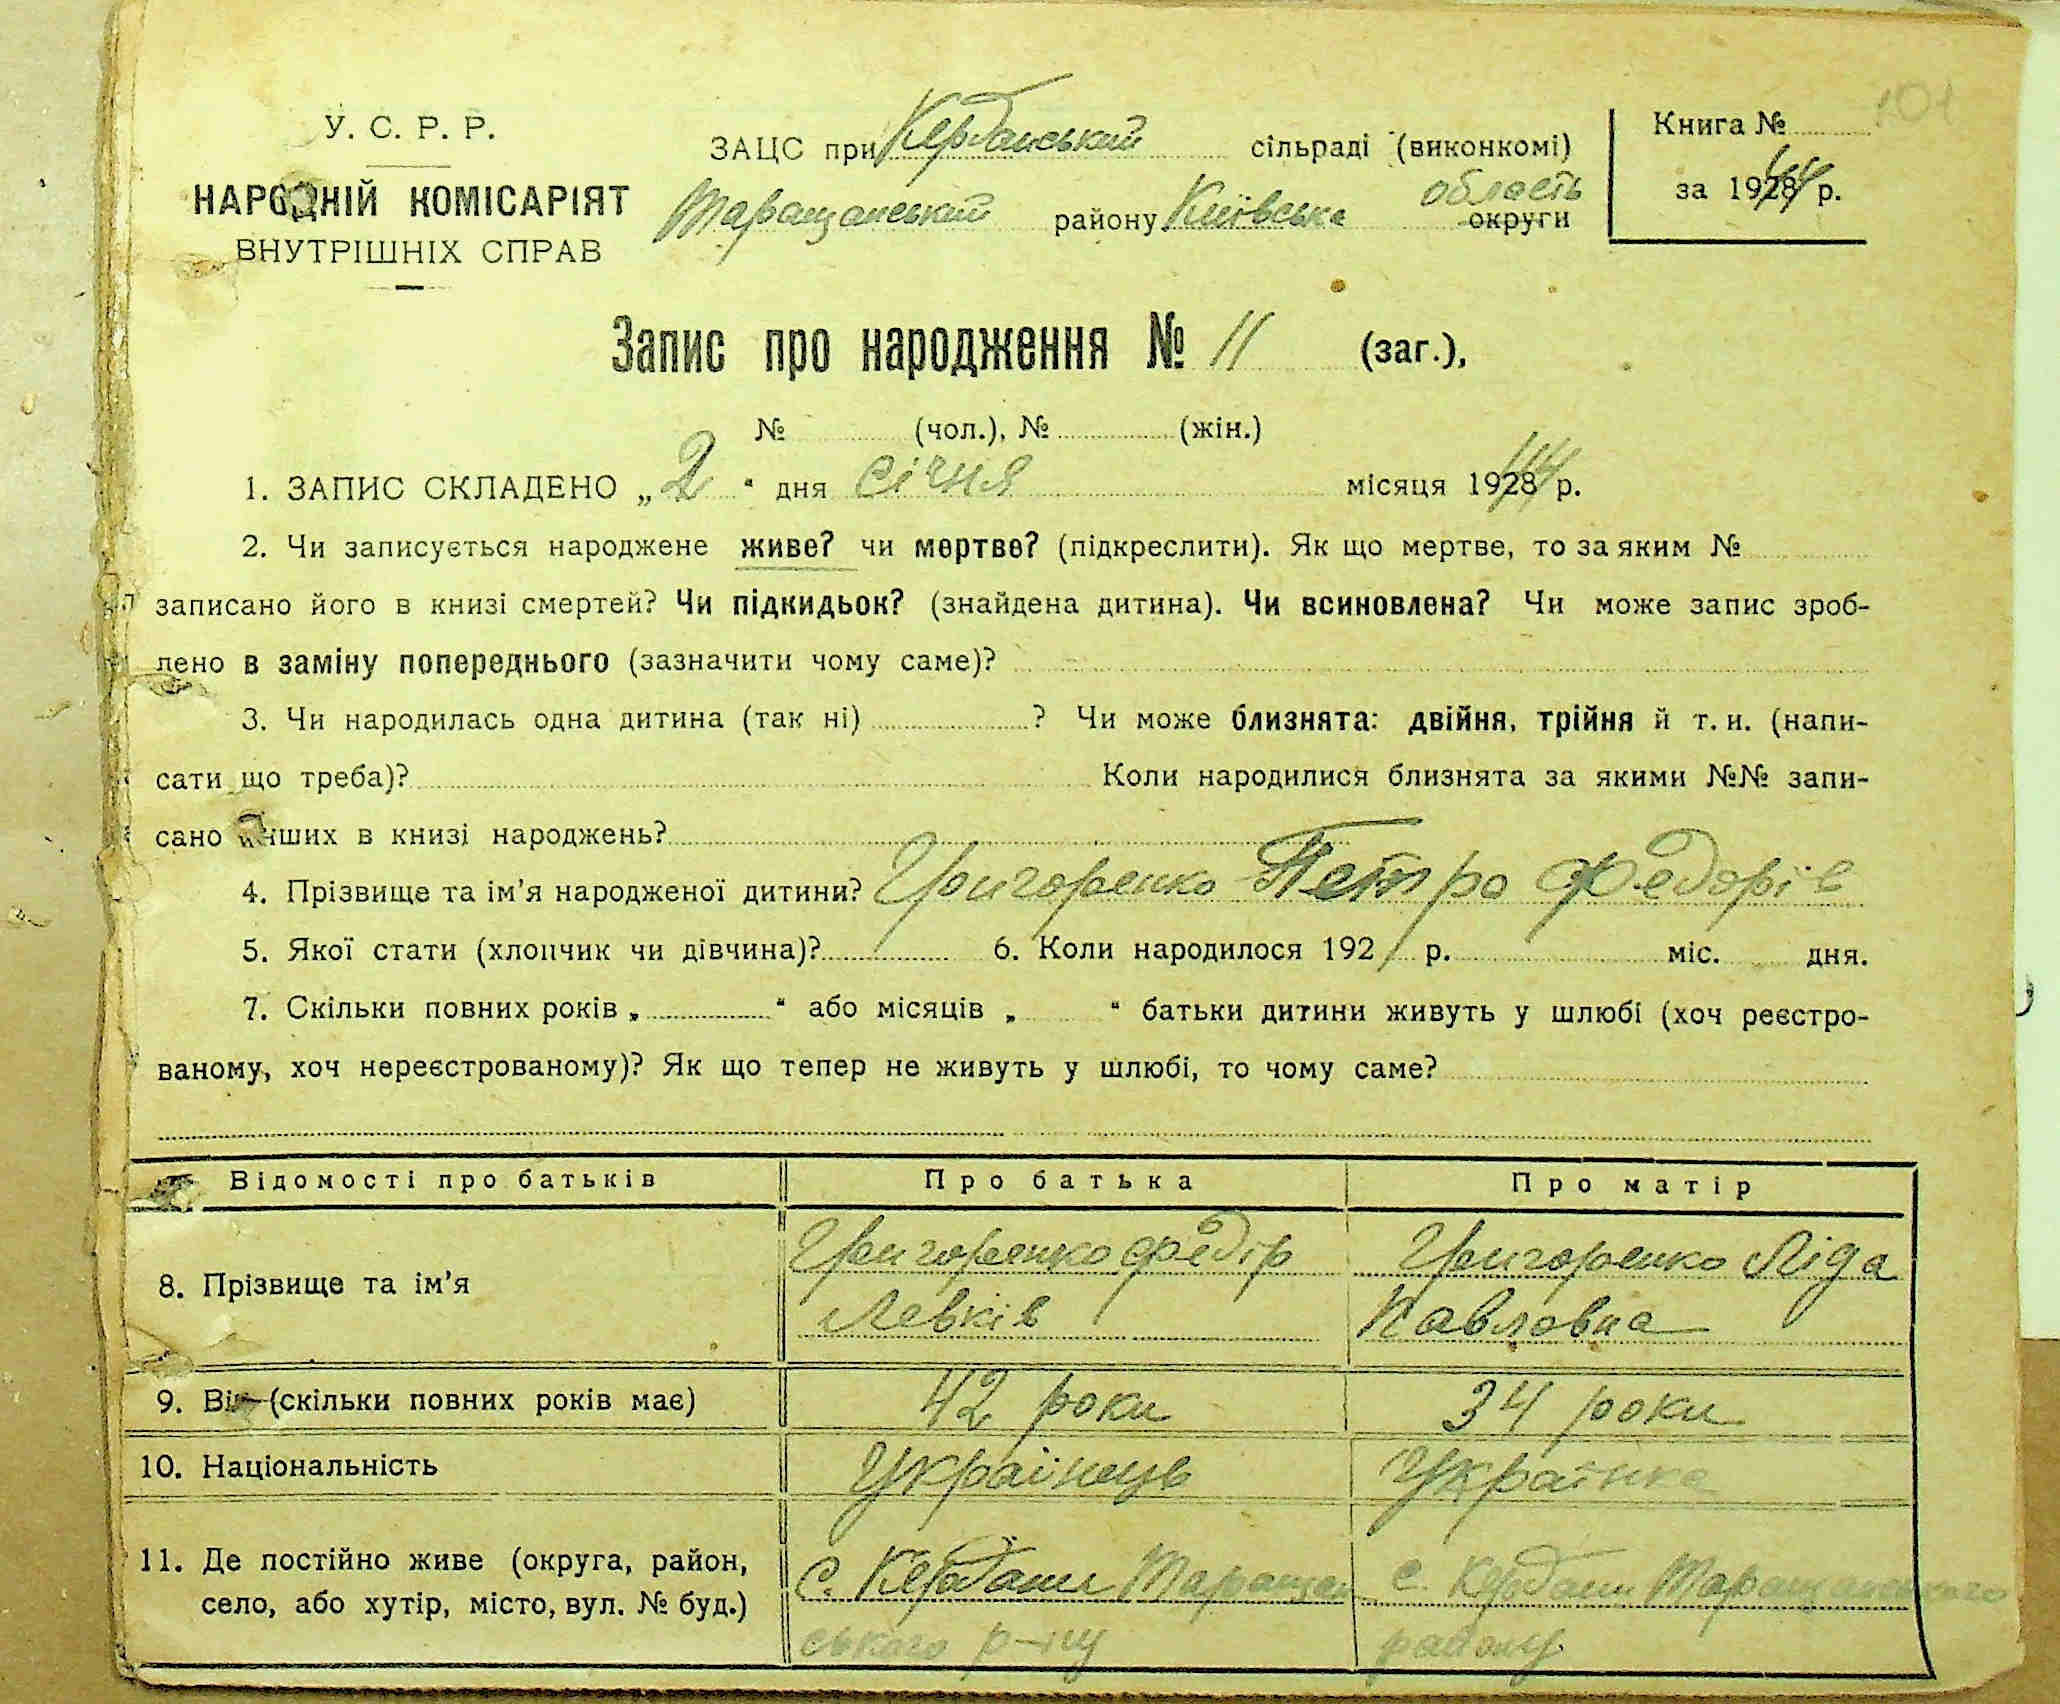 101
У. С. Р. Р.
НАРОДНІЙ КОМІСАРІЯТ
ВНУТРІШНІХ СПРАВ
ЗАЦС при Кердански́й сільраді (виконкомі)
Таращанський району Київська округи область
Книга №
за 1944 р.
Запис про народження № 11 (заг.),
№ (чол.), № (жін.)
1. ЗАПИС СКЛАДЕНО „2“ дня січня місяця 1944 р.
2. Чи записується народжене живе? чи мертве? (підкреслити). Як що мертве, то за яким №
записано його в книзі смертей? Чи підкидьок? (знайдена дитина). Чи всиновлена? Чи може запис зроб-
лено в заміну попереднього (зазначити чому саме)?
3. Чи народилась одна дитина (так ні) ? Чи може близнята: двійня, трійня й т. и. (напи-
сати що треба)? Коли народилися близнята за якими №№ запи-
сано инших в книзі народжень?
4. Прізвище та ім’я народженої дитини? Григоренко Петро Федорів
5. Якої стати (хлопчик чи дівчина)? 6. Коли народилося 192 р. міс. дня.
7. Скільки повних років „ “ або місяців „ “ батьки дитини живуть у шлюбі (хоч реєстро-
ваному, хоч нереєстрованому)? Як що тепер не живуть у шлюбі, то чому саме?
Відомості про батьків Про батька Про матір
8. Прізвище та ім’я
Григоренко Федір
Левків
Григоренко Ліда
Павловна
9. Вік (скільки повних років має) 42 роки 34 роки
10. Національність Українець Українка
11. Де постійно живе (округа, район,
село, або хутір, місто, вул. № буд.)
с. Кердани Таращан
ського р-ну
с. Кердани Таращанського
району